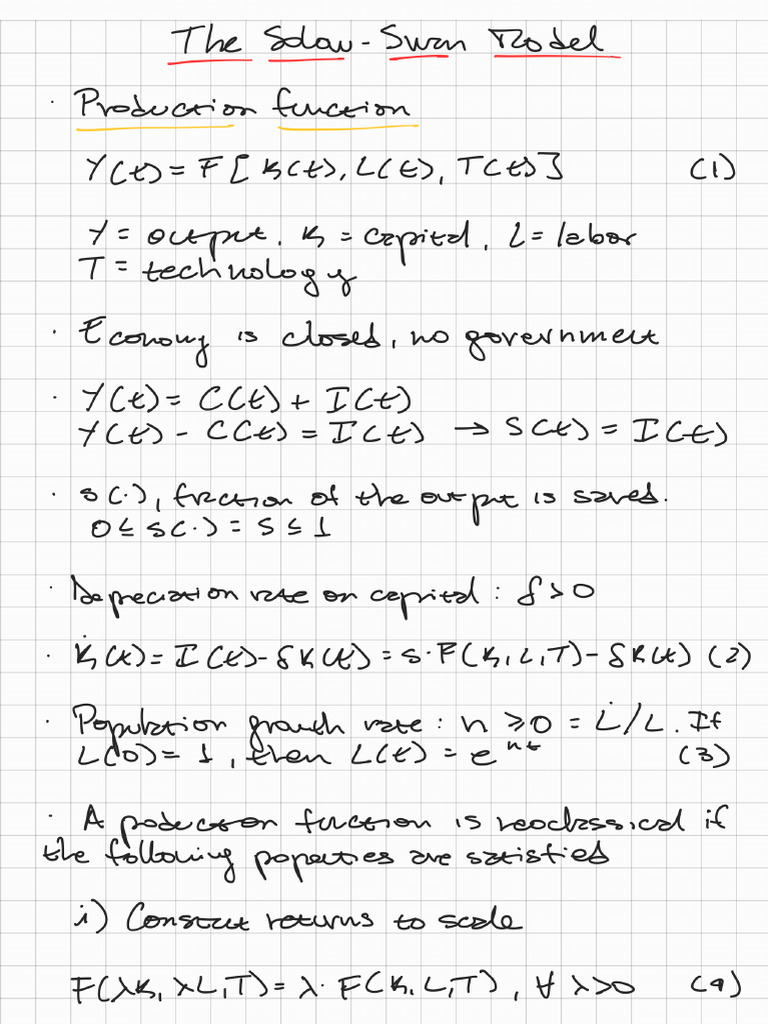 The Solow-Swan Model
· Production function
Y(t) = F[K(t), L(t), T(t)] (1)
Y = output, K = capital, L = labor
T = technology
· Economy is closed, no government
· Y(t) = C(t) + I(t)
Y(t) - C(t) = I(t) → S(t) = I(t)
· s(·), fraction of the output is saved.
0 ≤ s(·) = s ≤ 1
· Depreciation rate on capital: δ > 0
· K̇(t) = I(t) - δK(t) = s·F(K, L, T) - δK(t) (2)
· Population growth rate: n ≥ 0 = L̇/L. If
L(0) = 1, then L(t) = e^{nt} (3)
· A poduction function is neoclassical if
the following poperties are satisfied
i) Constant returns to scale
F(λK, λL, T) = λ· F(K, L, T), ∀ λ>0 (4)